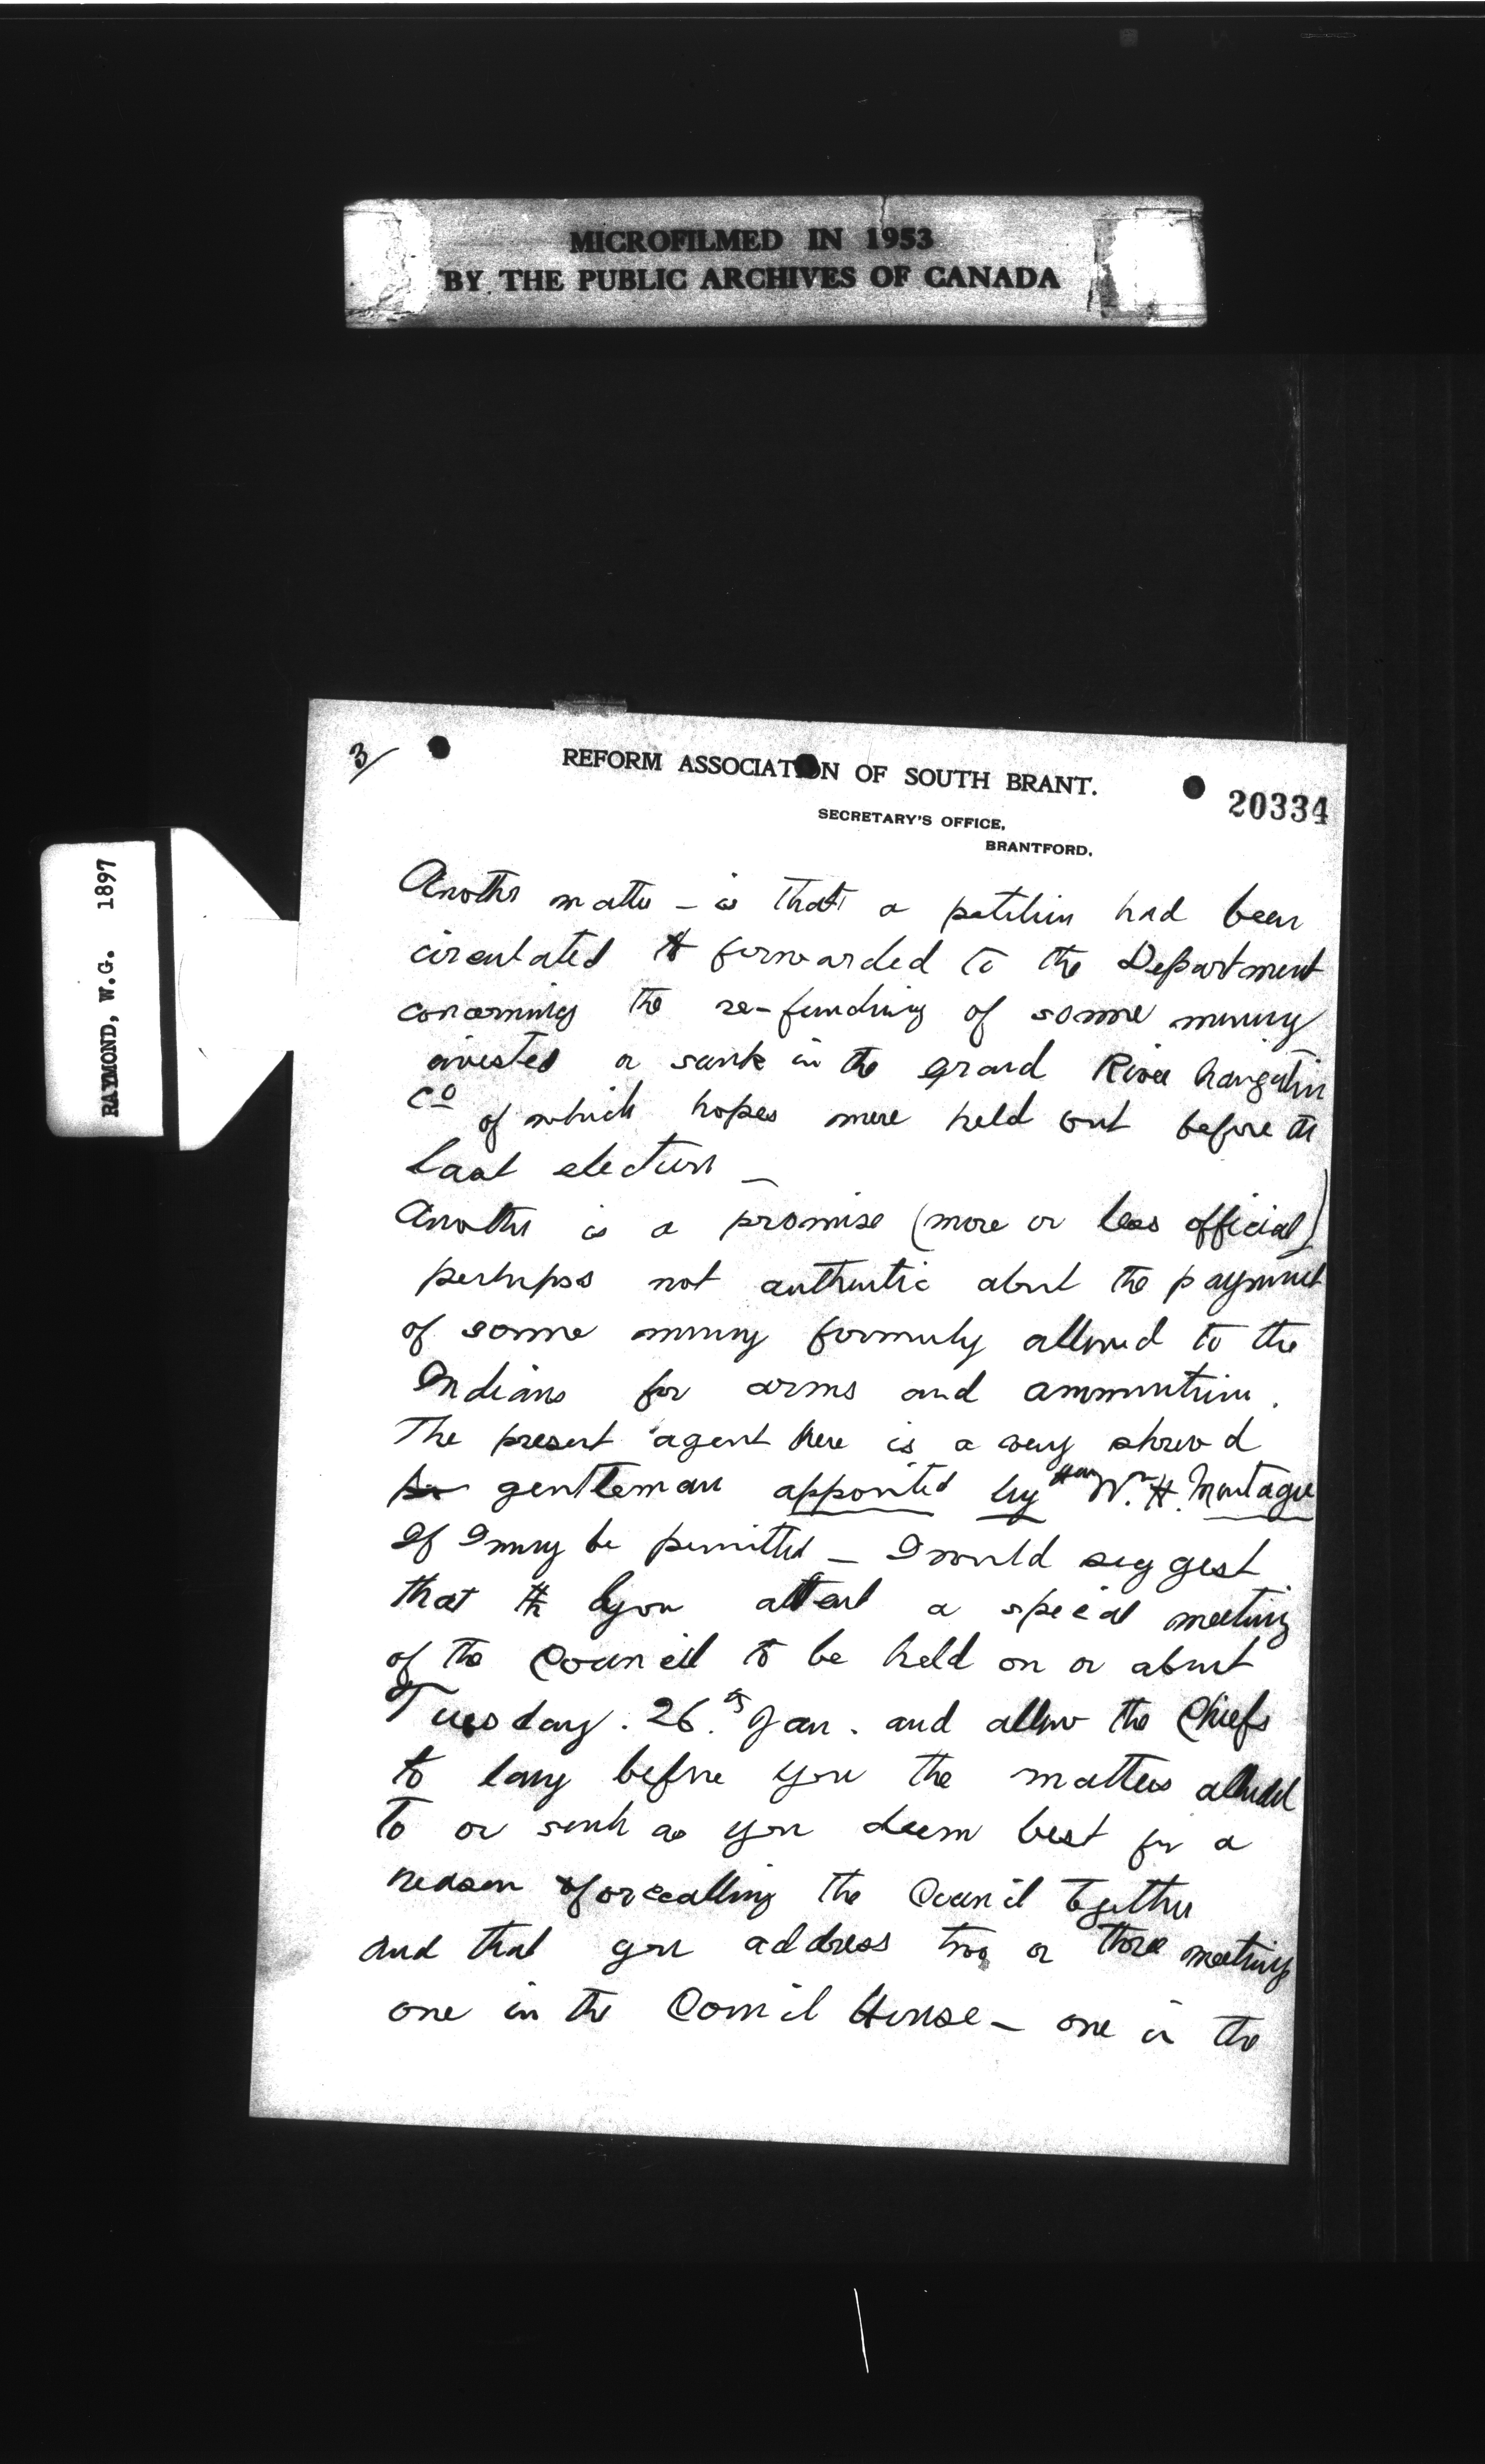 MICROFILMED IN 1953
BY THE PUBLIC ARCHIVES OF CANADA
RAYMOND, W.G. 1897
3/
REFORM ASSOCIATION OF SOUTH BRANT.
20334
SECRETARY'S OFFICE,
BRANTFORD.
Another matter – is that a petition had been
circulated & forwarded to the Department
concerning the re-funding of some money
invested or sunk in the Grand River Navigation
Co of which hopes were held out before the
last election –
Another is a promise (more or less official)
perhapss not authentic about the payment
of some money formerly allowed to the
Indians for arms and ammunition.
The present agent here is a very shrewd
gentleman appointed by Hon Wm. H. Montague
If I may be permitted – I would suggest
that you attend a special meeting
of the Council to be held on or about
Tuesday. 26.th Jan. and allow the Chiefs
to lay before you the matters alluded
to or such as you deem best for a
reason for calling the Council together
and that you address two or three meetings
one in the Council House – one in the